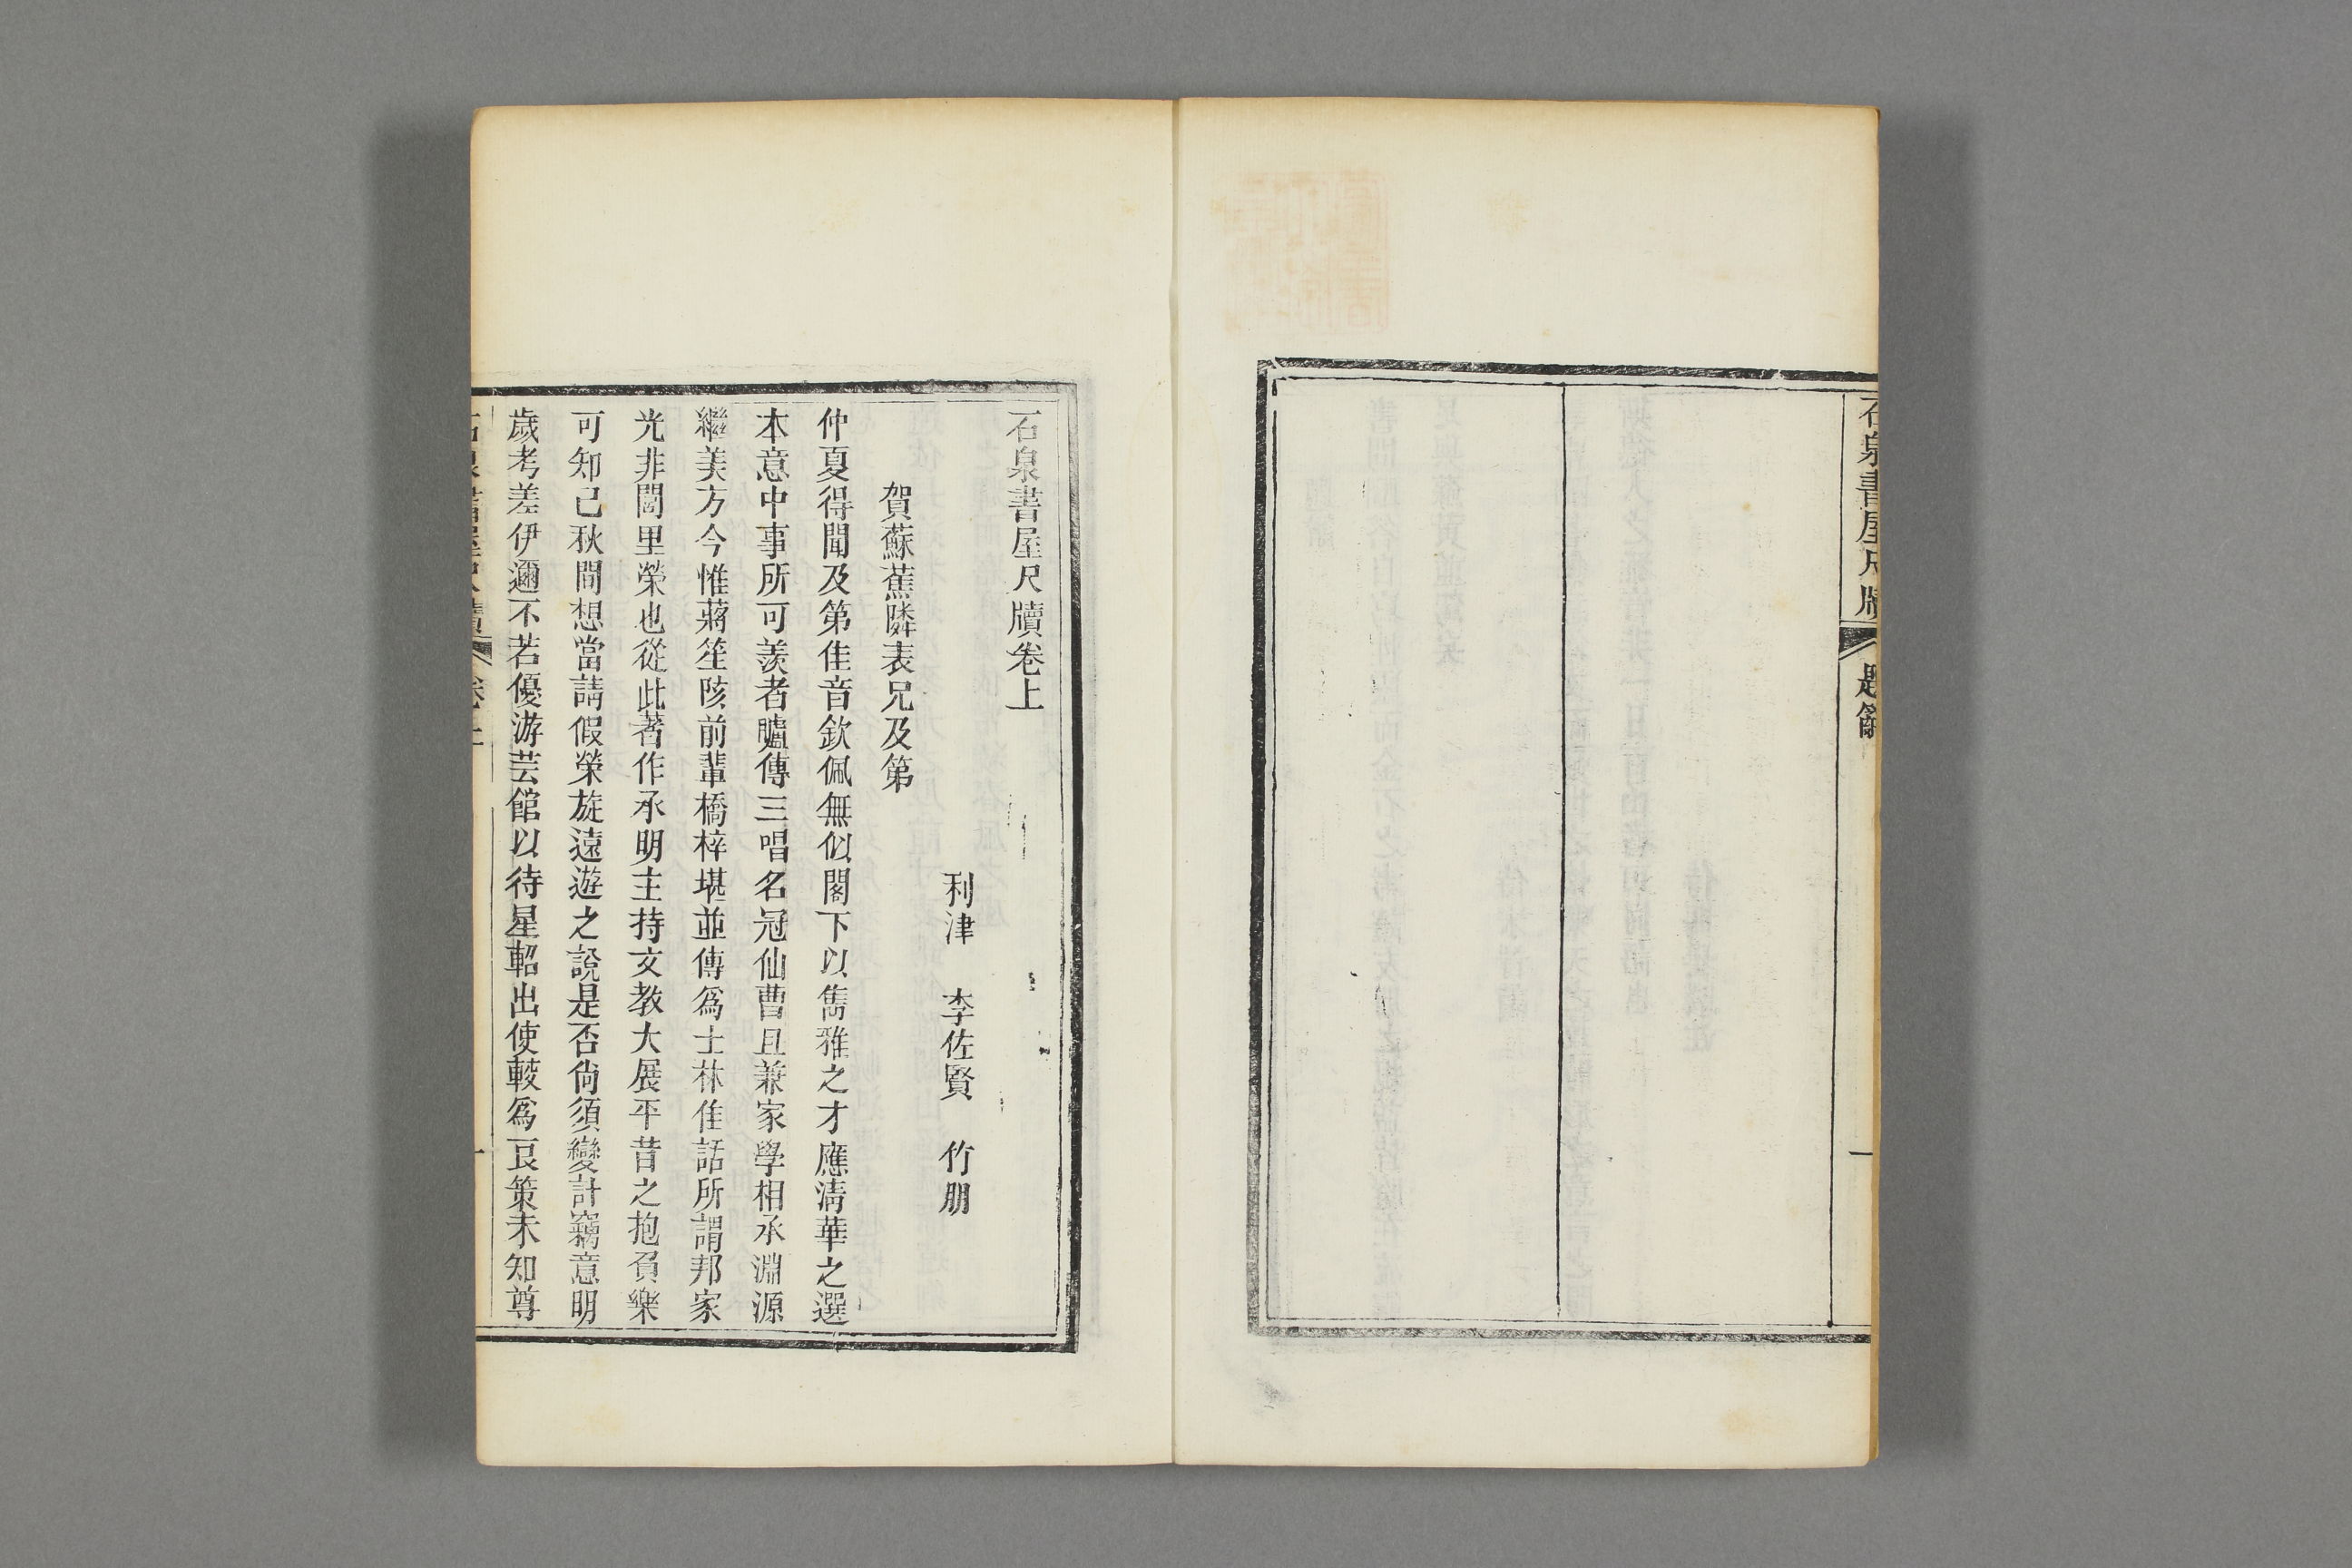 石泉書屋尺牘
題辭
一
石泉書屋尺牘卷上
利津　李佐賢　竹朋
賀蘇蕉隣表兄及第
仲夏得聞及第佳音欽佩無似閣下以雋雅之才應淸華之選
本意中事所可羨者臚傳三唱名冠仙曹且兼家學相承淵源
繼美方今惟蔣笙陔前輩橋梓堪並傳爲士林佳話所謂邦家
光非閭里榮也從此著作承明主持文教大展平昔之抱負樂
可知已秋間想當請假榮旋遠遊之說是否尙須變計竊意明
歲考差伊邇不若優游芸館以待星軺出使較爲良策未知尊
石泉書屋尺牘
卷上
一